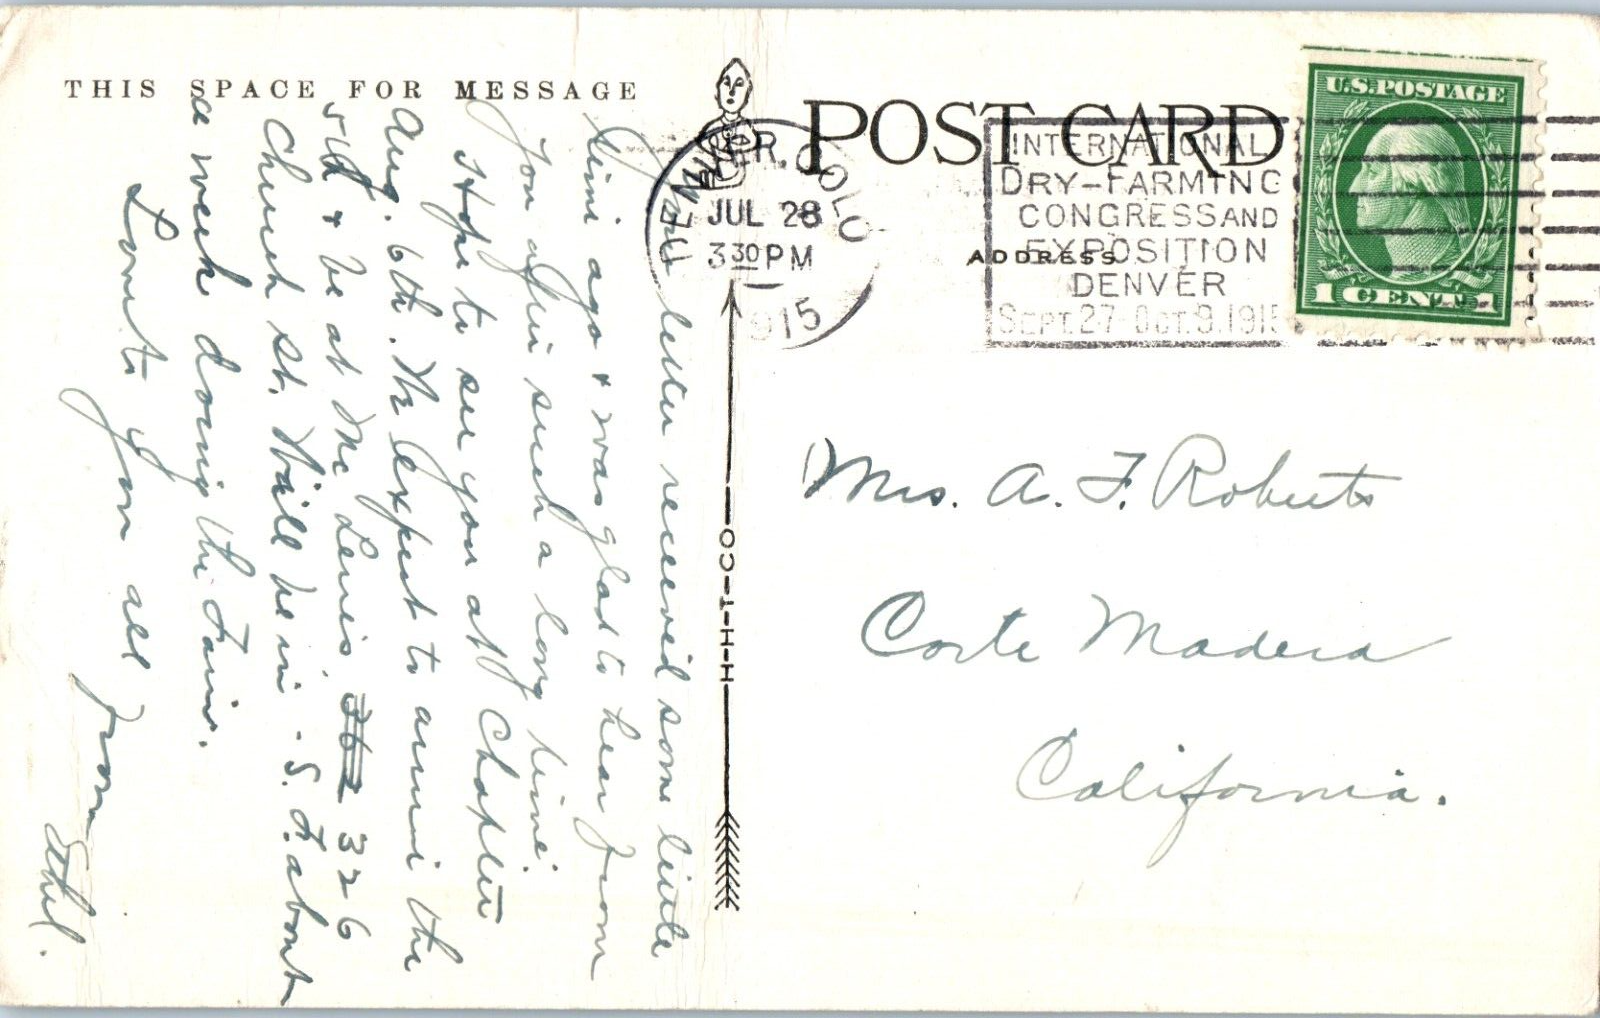 THIS SPACE FOR MESSAGE
Your letter received some little
time ago & was glad to hear from
you after such a long time.
Hope to see you at Chapter
Aug. 6th. We expect to arrive the
5th & be at Mc Lewis, 362 326
Church st. Will be in - S. F. about
a week doing the Fair.
Love to you all
from Ethel.
POST CARD
ADDRESS
DENVER. COLO
JUL 28
3 30 PM
1915
INTERNATIONAL
DRY-FARMING
CONGRESS AND
EXPOSITION
DENVER
SEPT. 27-OCT. 9. 1915
U.S. POSTAGE
1 CENT 1
H-H-T-CO
Mrs. A. F. Roberts
Corte Madera
California.